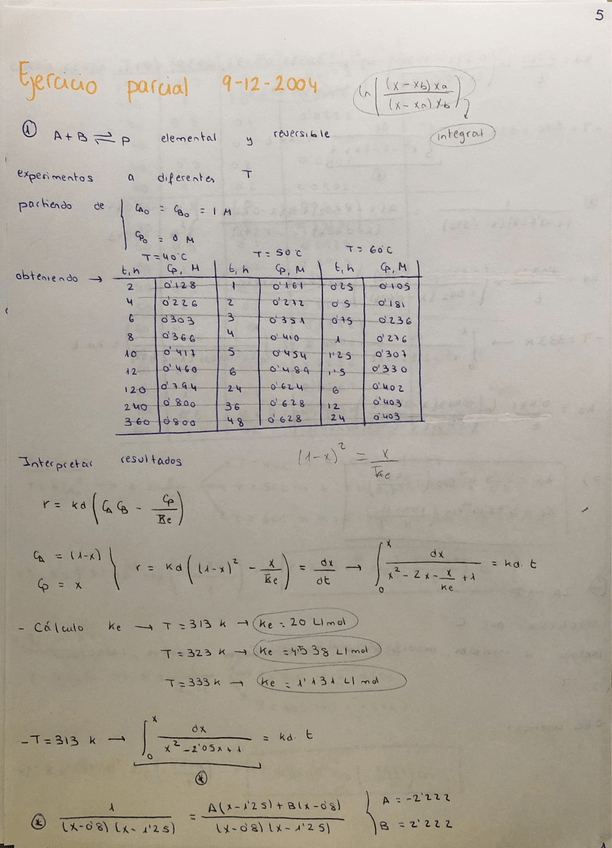 5
Ejercicio parcial 9-12-2004
ln | (x-xb) xa / (x-xa) xb |
integral
① A+B ⇌ P elemental y reversible
experimentos a diferentes T
partiendo de { CA0 = CB0 = 1 M
CP0 = 0 M
T=40°C T=50°C T=60°C
obteniendo → t,h Cp, M t,h Cp, M t,h Cp, M
2 0'128 1 0'161 0'25 0'105
4 0'226 2 0'272 0'5 0'181
6 0'303 3 0'351 0'75 0'236
8 0'366 4 0'410 1 0'276
10 0'417 5 0'454 1'25 0'307
12 0'460 6 0'489 1'5 0'330
120 0'794 24 0'624 6 0'402
240 0'800 36 0'628 12 0'403
360 0'800 48 0'628 24 0'403
Interpretar resultados (1-x)² = x/Ke
r = kd (CA CB - Cp/Ke)
CA = (1-x)
Cp = x } r = kd ((1-x)² - x/Ke) = dx/dt → ∫₀ˣ dx / (x² - 2x - x/Ke + 1) = kd. t
- Cálculo Ke → T=313 K → Ke = 20 L/mol
T=323 K → Ke = 4'538 L/mol
T=333 K → Ke = 1'131 L/mol
- T=313 K → ∫₀ˣ dx / (x² - 2'05x + 1) = kd. t
*
* 1 / (x-0'8)(x-1'25) = A(x-1'25) + B(x-0'8) / (x-0'8)(x-1'25) { A = -2'222
B = 2'222